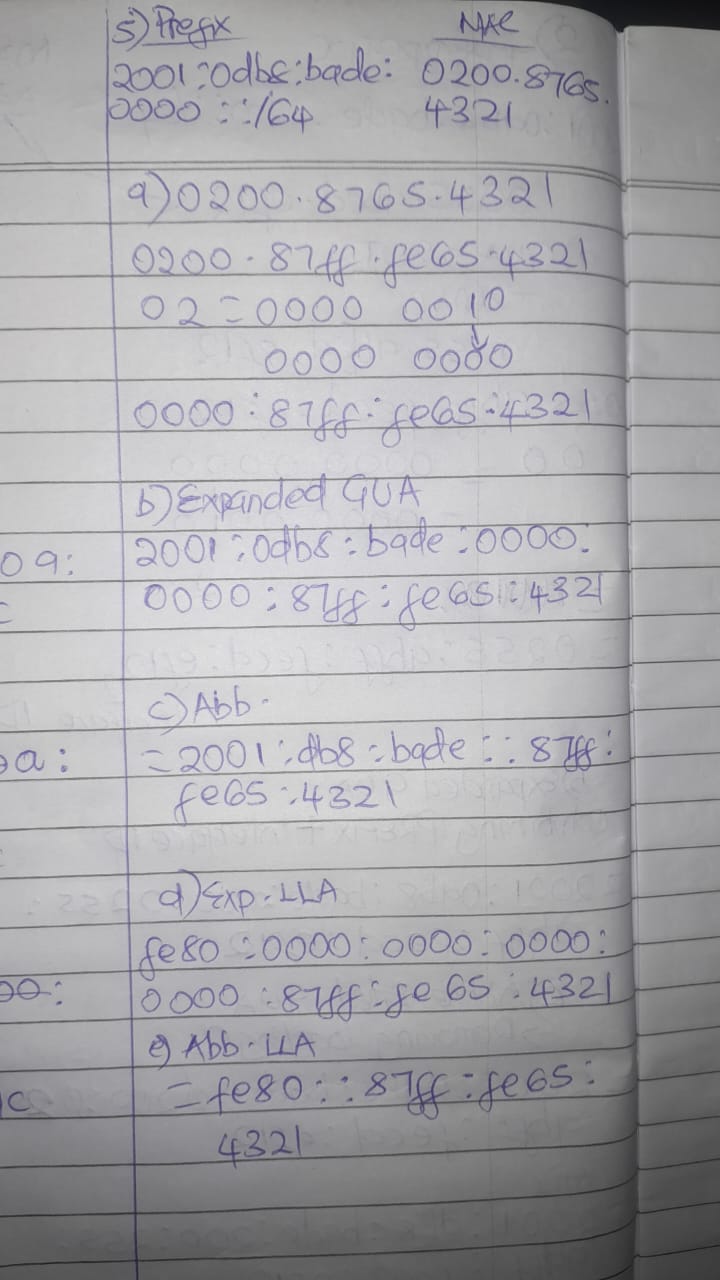 5) Prefix MAC
2001:0db8:bade: 0200.8765.
0000::/64 4321
a) 0200.8765.4321
0200.87ff.fe65.4321
02 = 0000 0010
0000 0000
0000:87ff:fe65:4321
b) Expanded GUA
09: 2001:0db8:bade:0000:
0000:87ff:fe65:4321
c) Abb.
a: = 2001:db8:bade::87ff:
fe65:4321
d) Exp. LLA
fe80:0000:0000:0000:
00: 0000:87ff:fe65:4321
e) Abb. LLA
c = fe80::87ff:fe65:
4321